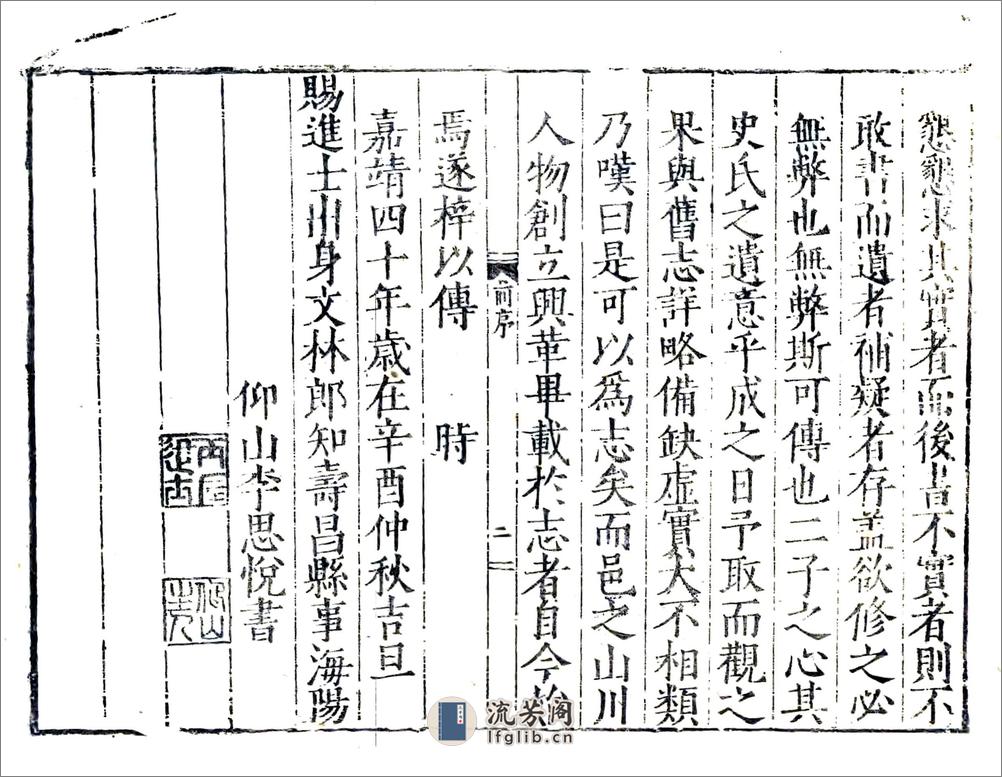 懇懇求其實者而後書不實者則不
敢書而遺者補疑者存盖欲修之必
無弊也無弊斯可傳也二子之心其
史氏之遺意乎成之日予取而觀之
果與舊志詳略備缺虛實大不相類
乃嘆曰是可以爲志矣而邑之山川
人物創立興革畢載於志者自今始
前序
二
焉遂梓以傳 時
嘉靖四十年歲在辛酉仲秋吉旦
賜進士出身文林郎知壽昌縣事海陽
仰山李思悅書
流芳阁
lfglib.cn